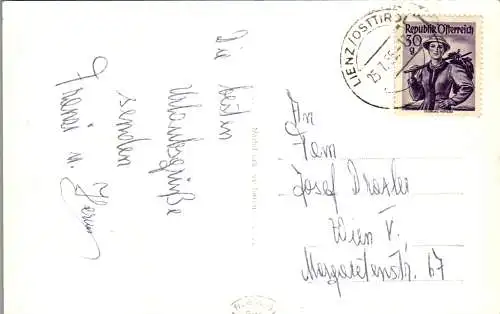 Die besten
Urlaubsgrüße
senden
Franzi u.
LIENZ/OSTTIROL
25.7.
Republik Österreich
30
g
An
Fam
Josef Draxler
Wien V.
Margaretenstr. 67